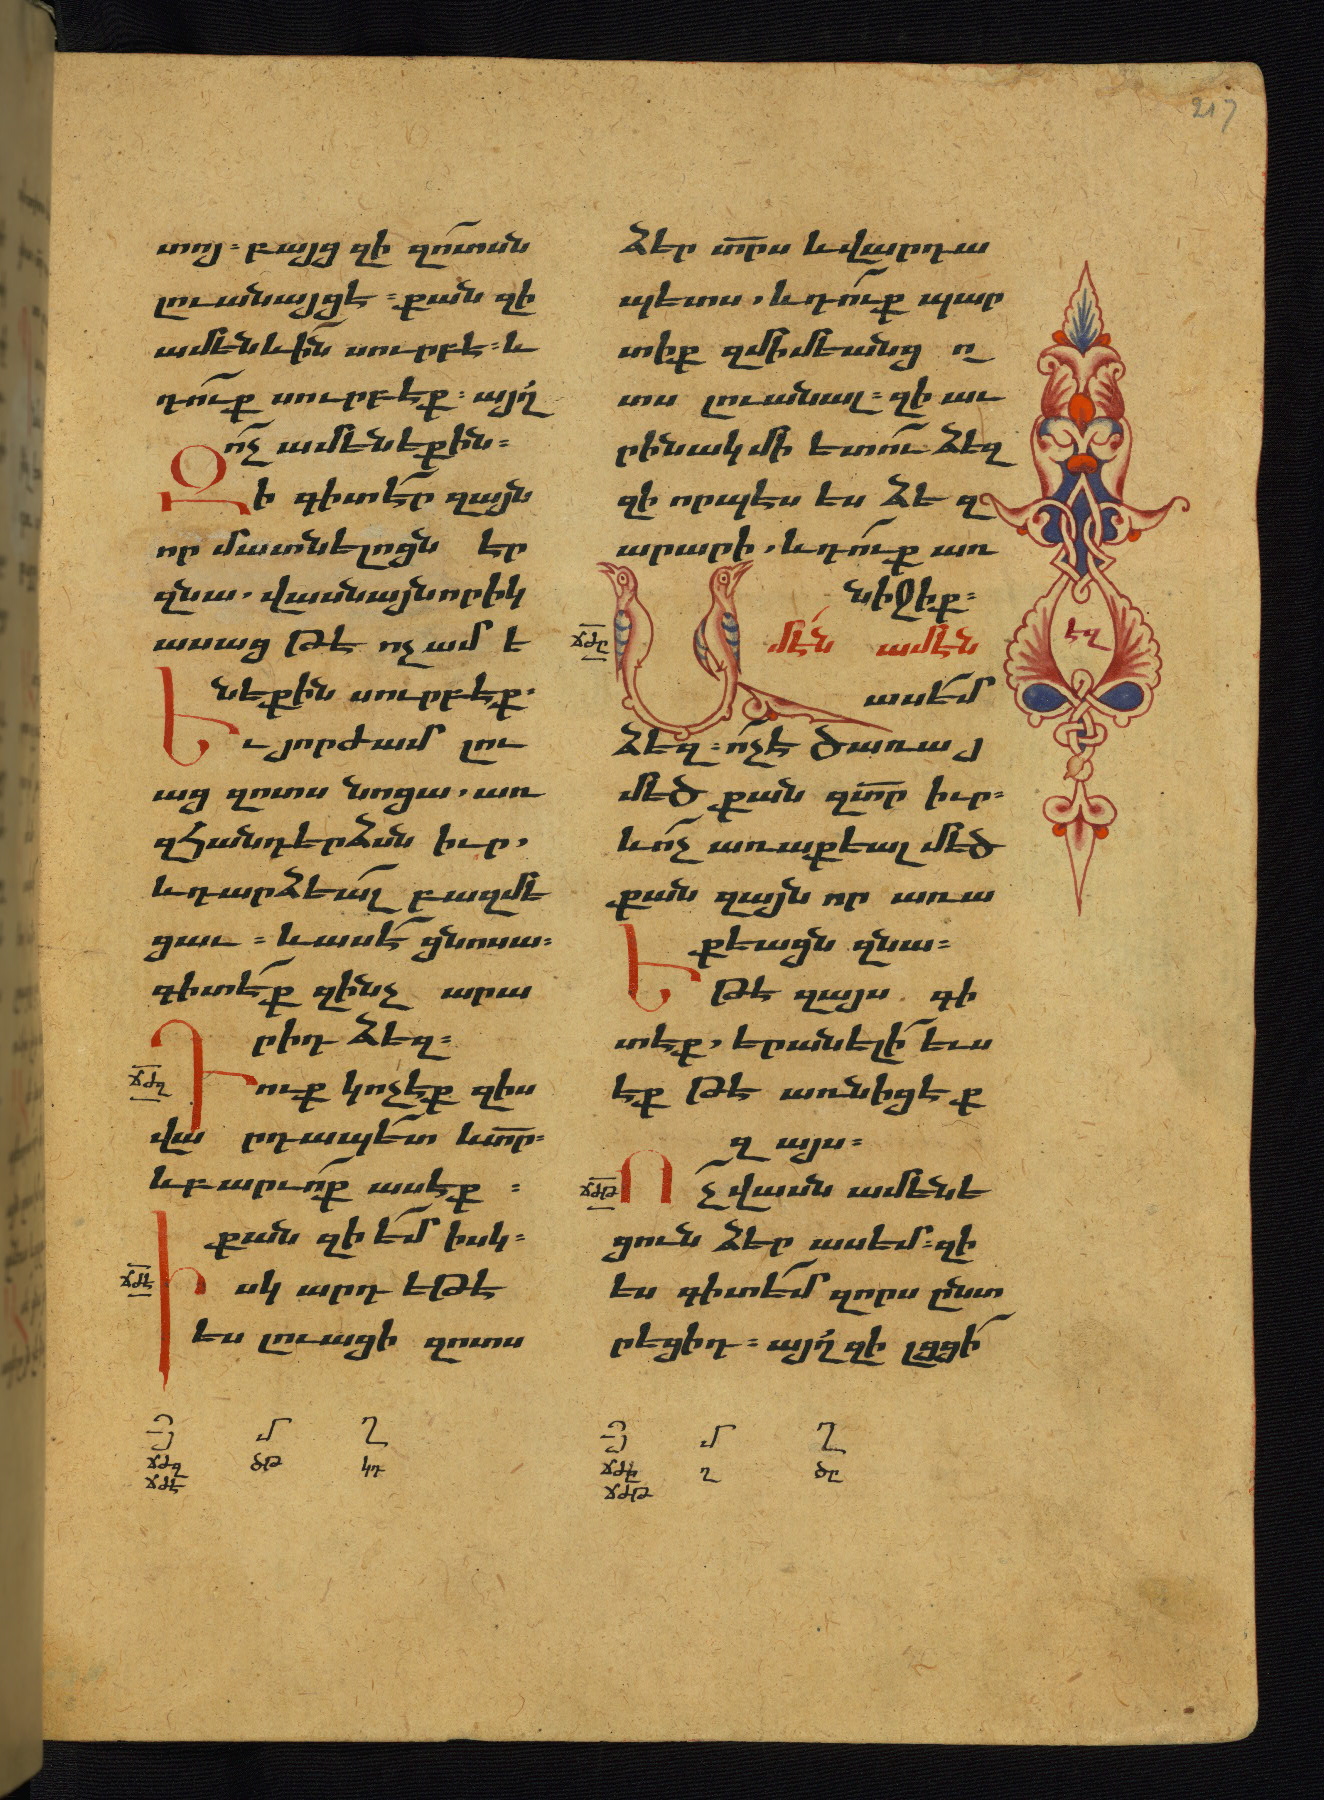 217
տոյ. բայց զի զոտսն
լուանայցէ. քան զի
ամենևին սուրբ է. և
դուք սուրբ էք. այղ
ոչ ամենեքին.
Զի գիտէր զայն
որ մատնելոցն էր
զնա, վասն այնորիկ
ասաց թէ ոչ ամե
նեքին սուրբ էք.
Եւ յորժամ լու
աց զոտս նոցա, առ
զհանդերձսն իւր,
և դարձեալ բազմե
ցաւ. և ասէ ցնոսա.
գիտէք զինչ արա
րի դ ձեզ.
ճժզ
Դուք կոչէք զիս
վարդապետ և տր.
և բարւոք ասէք.
քան զի եմ իսկ.
ճժէ
Իսկ արդ եթէ
ես լուացի զոտս
ձեր տրս և վարդա
պետս, և դուք պար
տիք զմիմեանց ո
տս լուանալ. զի աւ
րինակ մի ետու ձեզ
զի որպէս ես ձեզ
արարի, և դուք առ
նիջիք.
ճժը
Ամէն ամէն
եզ
ասեմ
ձեզ. ոչ է ծառայ
մեծ քան զտր իւր.
և ոչ առաքեալ մեծ
քան զայն որ առա
քեացն զնա.
Եթէ զայս գի
տէք, երանելի ևս
էք թէ առնիցէք
զայս.
ճժթ
Ոչ վասն ամենե
ցուն ձեր ասեմ. զի
ես գիտեմ զորս ընտ
րեցի դ. այղ զի լցցի
Յ մ ղ
ճժզ ծթ կդ
ճժէ
Յ մ ղ
ճժը ղ ծը
ճժթ